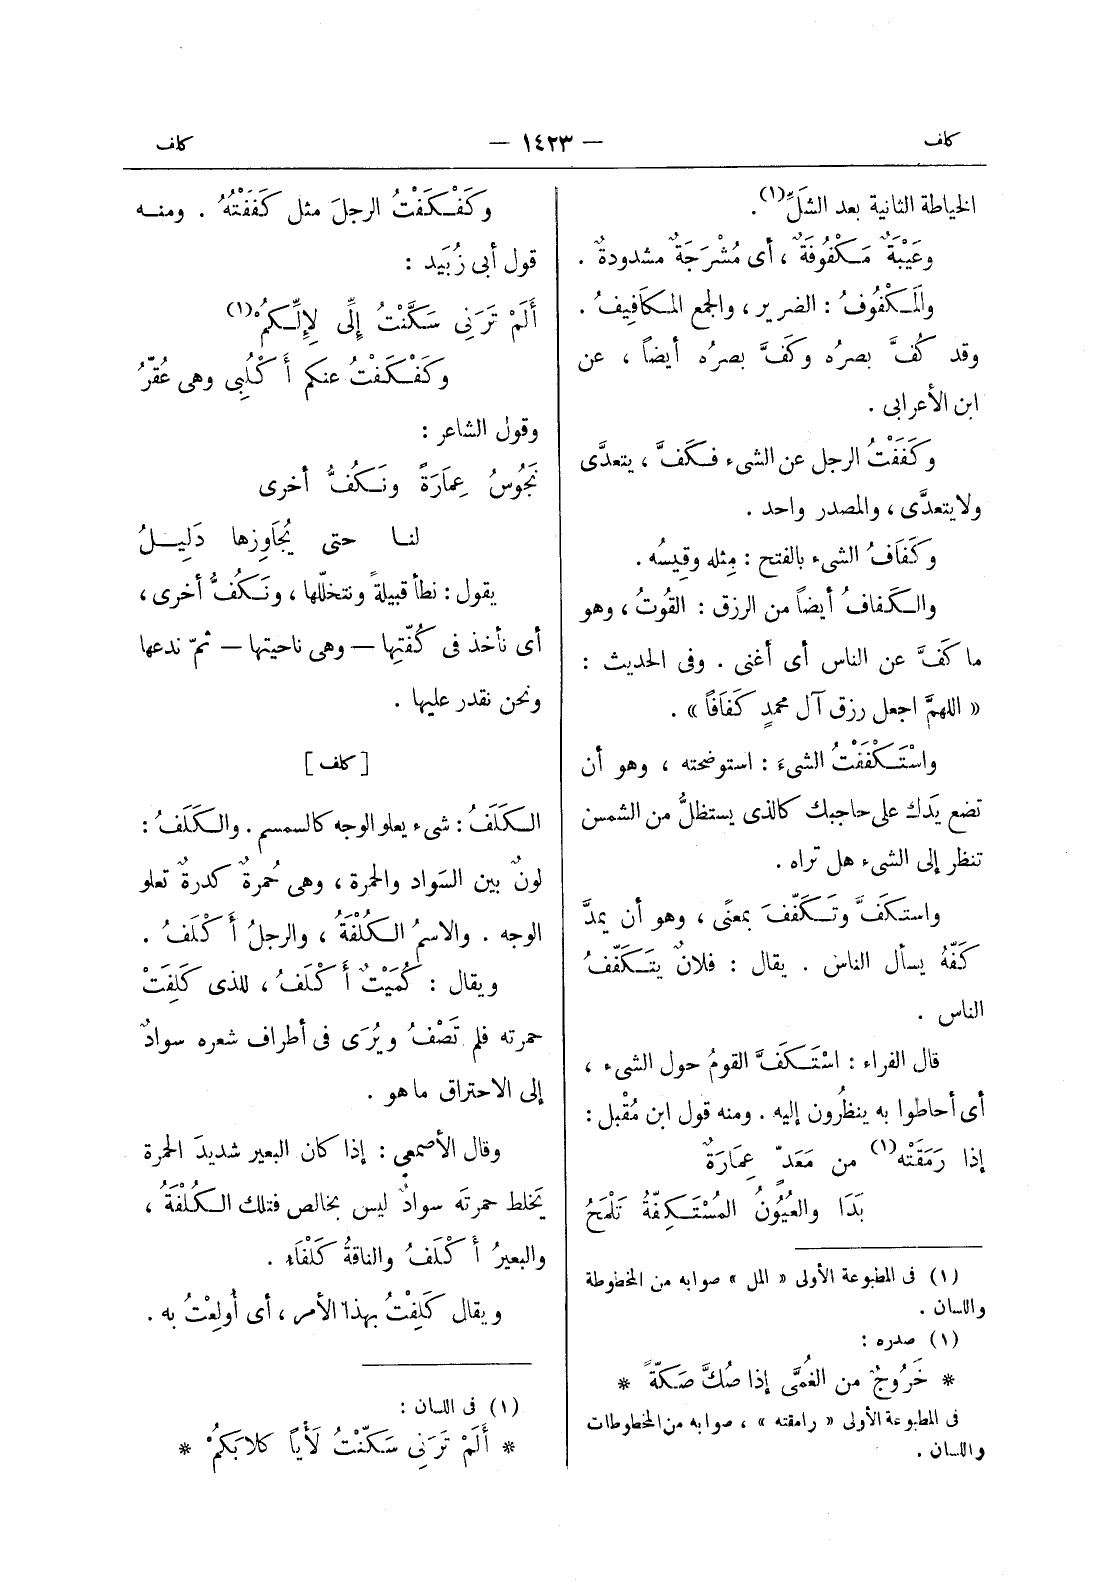 كلف — ١٤٢٣ — كلف
الخياطة الثانية بعد الشَلِّ(١).
وعَيْبَةٌ مَكْفُوفَةٌ ، أى مُشْرَجَةٌ مشدودةٌ .
والمَكْفُوفُ : الضرير ، والجمع المكَافِيفُ .
وقد كُفَّ بصرُه وكَفَّ بصرُه أيضاً ، عن
ابن الأعرابى .
وكَفَفْتُ الرجل عن الشىء فكَفَّ ، يتعدَّى
ولا يتعدَّى ، والمصدر واحد .
وكَفَافُ الشىء بالفتح : مِثله وقِيسُه .
والكَفافُ أيضاً من الرزق : القُوتُ ، وهو
ما كَفَّ عن الناس أى أغنى . وفى الحديث :
« اللهمَّ اجعل رزق آل محمدٍ كَفَافًا » .
واسْتَكْفَفْتُ الشىءَ : استوضحته ، وهو أن
تضع يَدك على حاجبك كالذى يستظلُّ من الشمس
تنظر إلى الشىء هل تراه .
واستكَفَّ وتَكَفَّفَ بمعنًى ، وهو أن يمدَّ
كَفَّهُ يسأل الناس . يقال : فلانٌ يَتَكَفَّفُ
الناس .
قال الفراء : اسْتَكَفَّ القومُ حول الشىء ،
أى أحاطوا به ينظُرون إليه . ومنه قول ابن مُقْبل :
إذا رَمَقَتْه(١) من مَعَدٍّ عِمَارَةٌ
بَدَا والعُيُونُ المُسْتَكِفَّةُ تَلْمَحُ
(١) فى المطبوعة الأولى « المل » صوابه من المخطوطة
واللسان .
(١) صدره :
* خَرُوجٌ من الغُمَّى إذا صُكَّ صَكَّةً *
فى المطبوعة الأولى « رامقته » ، صوابه من المخطوطات
واللسان .
وكَفْكَفْتُ الرجلَ مثل كَفَفْتُهُ . ومنه
قول أبى زُبَيد :
أَلَمْ تَرَنِى سَكَّنْتُ إِلِّى لِإِلِّكمُ(١)
وكَفْكَفْتُ عنكم أَكْلُبِى وهى عُقَّرُ
وقول الشاعر :
نَجُوسُ عِمَارَةً ونَكُفُّ أخرى
لنا حتى يُجَاوِزها دَلِيلُ
يقول : نطأ قبيلةً ونتخلّلها ، ونَكُفُّ أخرى ،
أى نأخذ فى كُفَّتِها — وهى ناحيتها — ثمّ ندعها
ونحن نقدر عليها .
[ كلف ]
الكَلَفُ : شىء يعلو الوجه كالسمسم . والكَلَفُ :
لونٌ بين السَواد والحمرة ، وهى حُمرةٌ كدرةٌ تعلو
الوجه . والاسم الكُلْفَةُ ، والرجلُ أَكْلَفُ .
ويقال : كُمَيْتٌ أَكْلَفُ ، للذى كَلِفَتْ
حمرته فلم تَصْفُ ويُرَى فى أطراف شعره سوادٌ
إلى الاحتراق ما هو .
وقال الأصمعى : إذا كان البعير شديدَ الحمرة
يَخلط حمرتَه سوادٌ ليس بخالص فتلك الكُلْفَةُ ،
والبعيرُ أَكْلَفُ والناقةُ كَلْفَاء .
ويقال كَلِفْتُ بهذا الأمر ، أى أُولِعْتُ به .
(١) فى اللسان :
* أَلَمْ تَرَنِى سَكَّنْتُ لَأْياً كلابَكمُ *